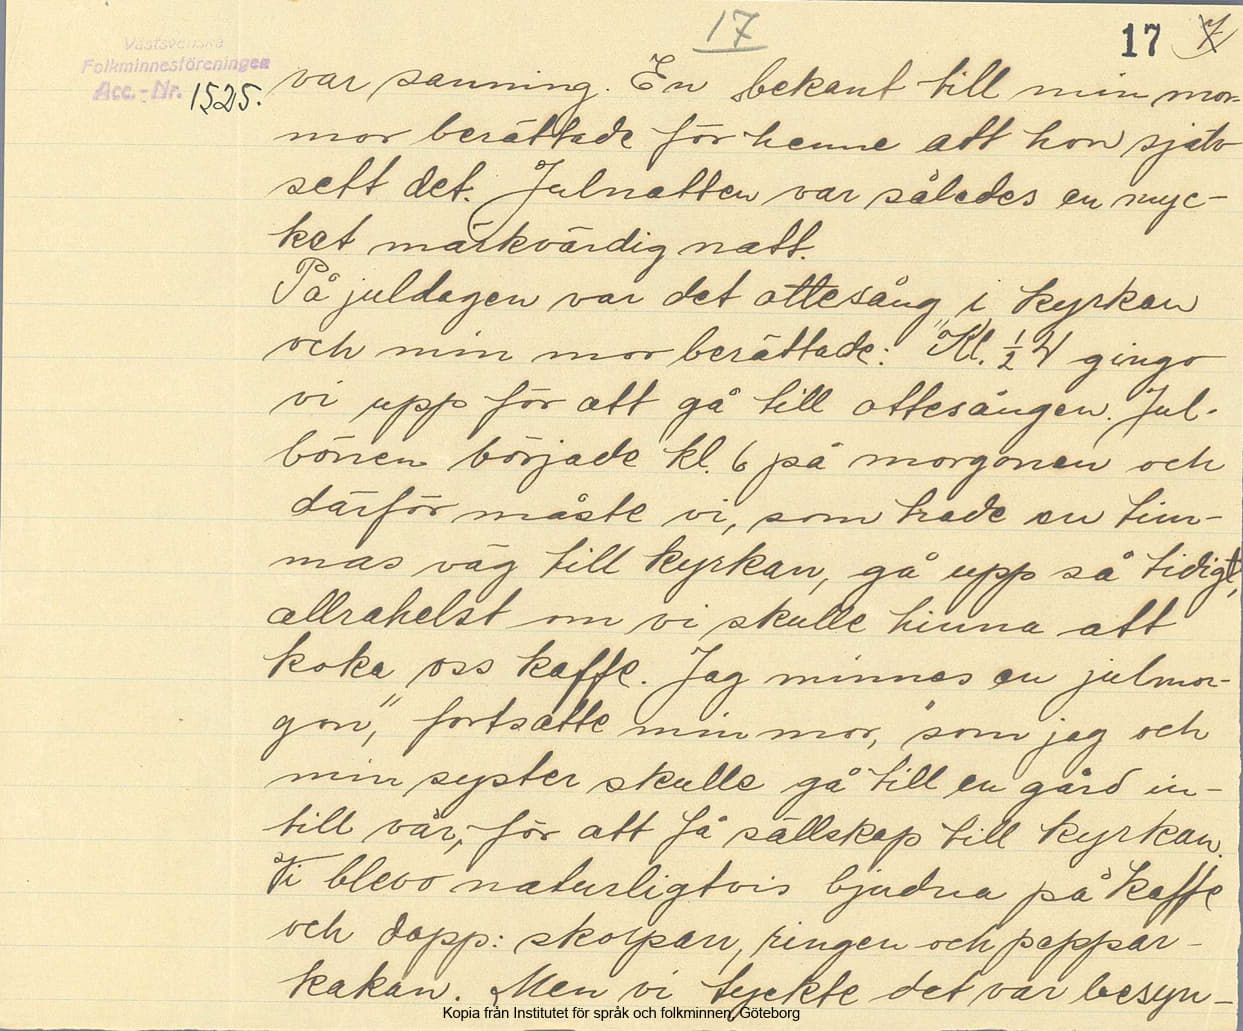 17
17 7
Västsvenska
Folkminnesföreningen
Acc. - Nr. 1525.
var sanning. En bekant till min mor-
mor berättade för henne att hon själv
sett det. Julnatten var således en myc-
ket märkvärdig natt.
På juldagen var det ottesång i kyrkan
och min mor berättade: "Kl. ½ 2 gingo
vi upp för att gå till ottesången. Jul-
bönen började kl. 6 på morgonen och
därför måste vi, som hade en tim-
mas väg till kyrkan, gå upp så tidigt,
allrahelst om vi skulle hinna att
koka oss kaffe. Jag minnes en julmor-
gon," fortsatte min mor, "som jag och
min syster skulle gå till en gård in-
till vår, för att få sällskap till kyrkan.
Vi blevo naturligtvis bjudna på kaffe
och dopp: skorpan, ringen och peppar-
kakan. Men vi tyckte det var besyn-
Kopia från Institutet för språk och folkminnen, Göteborg